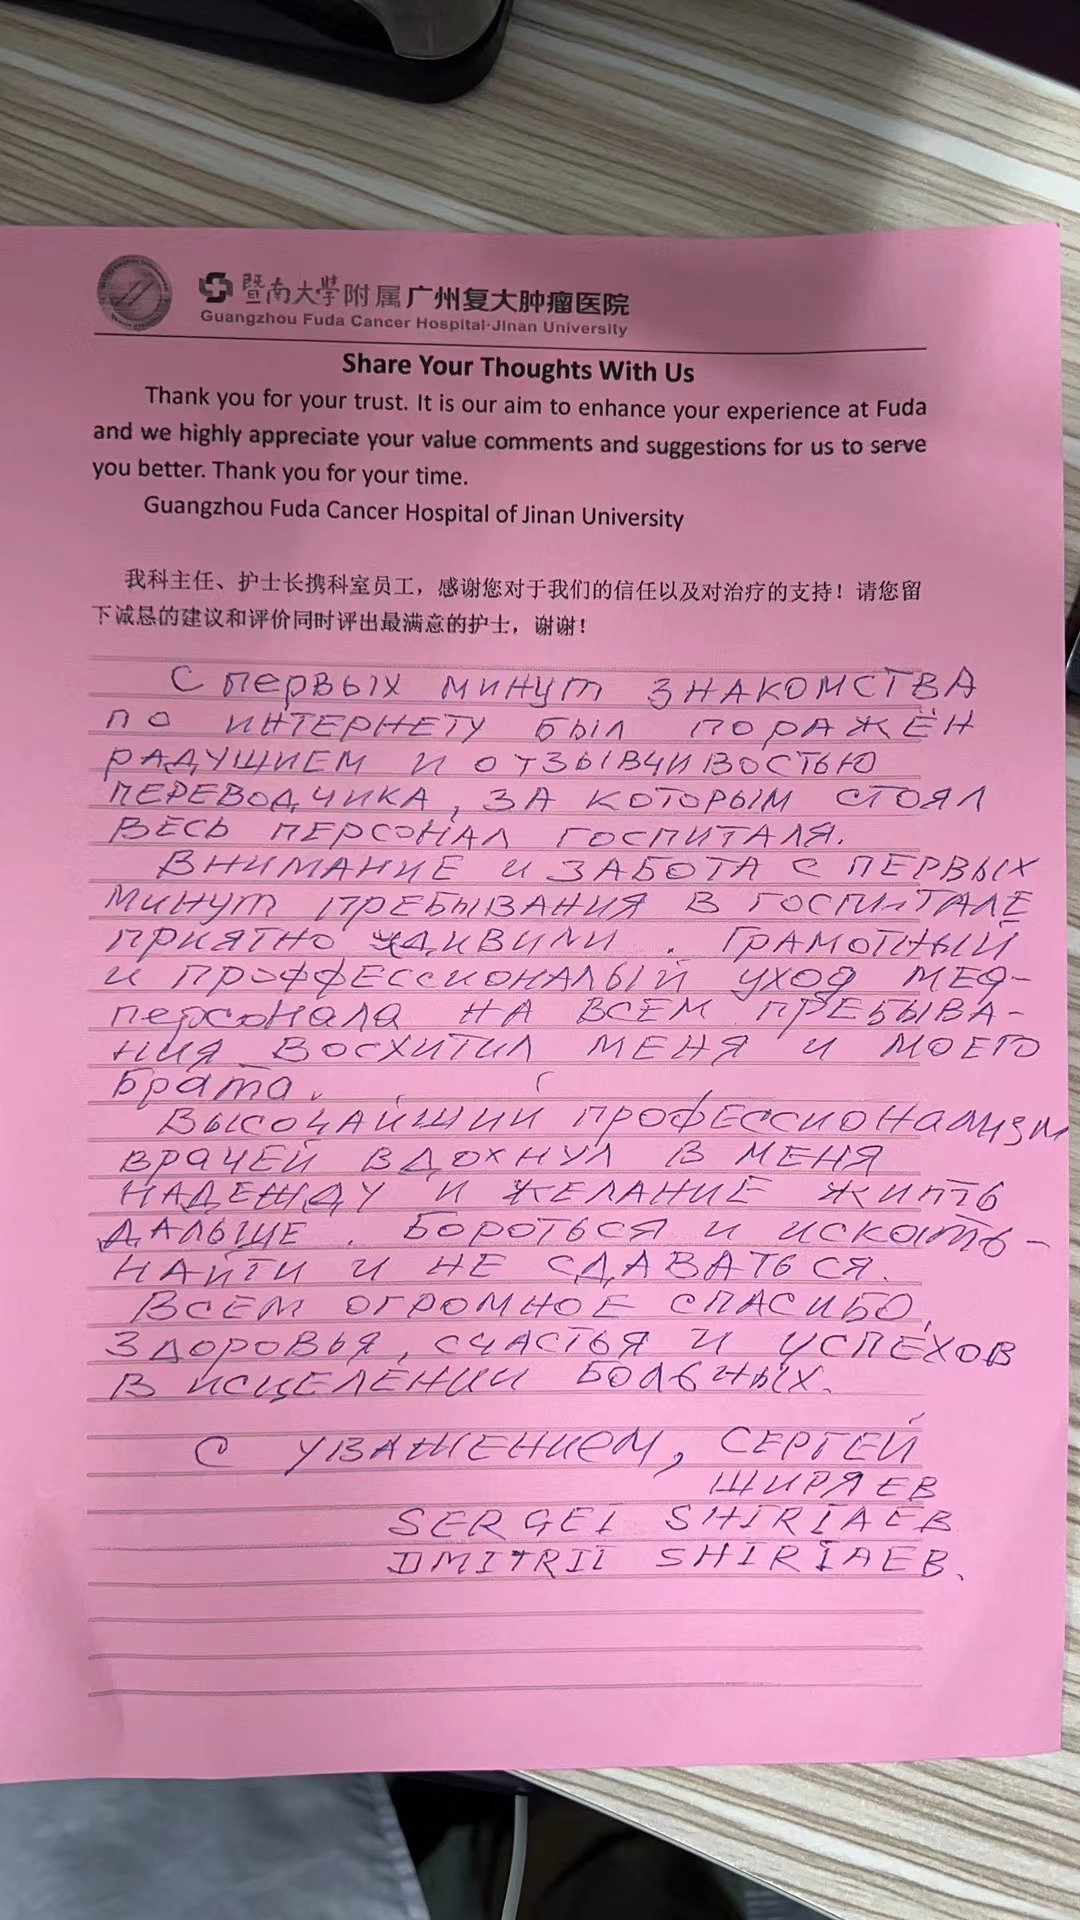 暨南大学附属广州复大肿瘤医院
Guangzhou Fuda Cancer Hospital·Jinan University
Share Your Thoughts With Us
Thank you for your trust. It is our aim to enhance your experience at Fuda
and we highly appreciate your value comments and suggestions for us to serve
you better. Thank you for your time.
Guangzhou Fuda Cancer Hospital of Jinan University
我科主任、护士长携科室员工，感谢您对于我们的信任以及对治疗的支持！请您留
下诚恳的建议和评价同时评出最满意的护士，谢谢！
С первых минут знакомства
по интернету был поражён
радушием и отзывчивостью
переводчика, за которым стоял
весь персонал госпиталя.
Внимание и забота с первых
минут пребывания в госпитале
приятно удивили. Грамотный
и проффессиональый уход мед-
персонала на всем пребыва-
ния восхитил меня и моего
брата.
Высочайший профессионализм
врачей вдохнул в меня
надежду и желание жить
дальше. Бороться и искать-
найти и не сдаваться.
Всем огромное спасибо,
здоровья, счастья и успехов
в исцелении больных.
С уважением, Сергей
Ширяев
SERGEI SHIRIAEB
DMITRII SHIRIAEB.